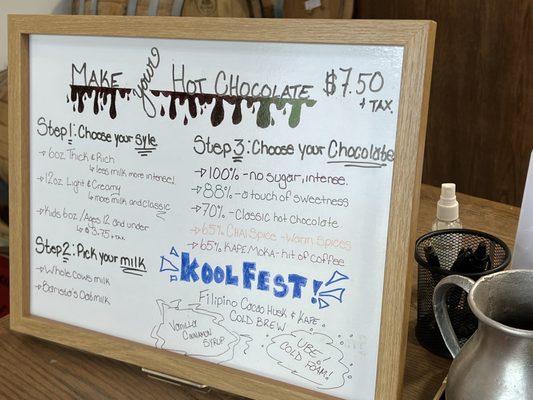 MAKE your HOT CHOCOLATE $7.50
+ TAX
Step 1: Choose your Syle
→ 6oz Thick & Rich
↳ less milk more intense!
→ 12oz Light & Creamy
↳ more milk and classic
→ Kids 6oz / Ages 12 and under
↳ $3.75 + tax
Step 2: Pick your milk
→ Whole Cows milk
→ Barista's Oatmilk
Step 3: Choose your Chocolate
→ 100% - no sugar, intense.
→ 88% - a touch of sweetness
→ 70% - Classic hot chocolate
→ 65% CHAI SPICE - Warm Spices
→ 65% KAPE MOKA - hit of coffee
KOOLFEST!
Filipino Cacao Husk & Kape
COLD BREW
Vanilla
CINNAMON
SYRUP
UBE!
COLD FOAM!